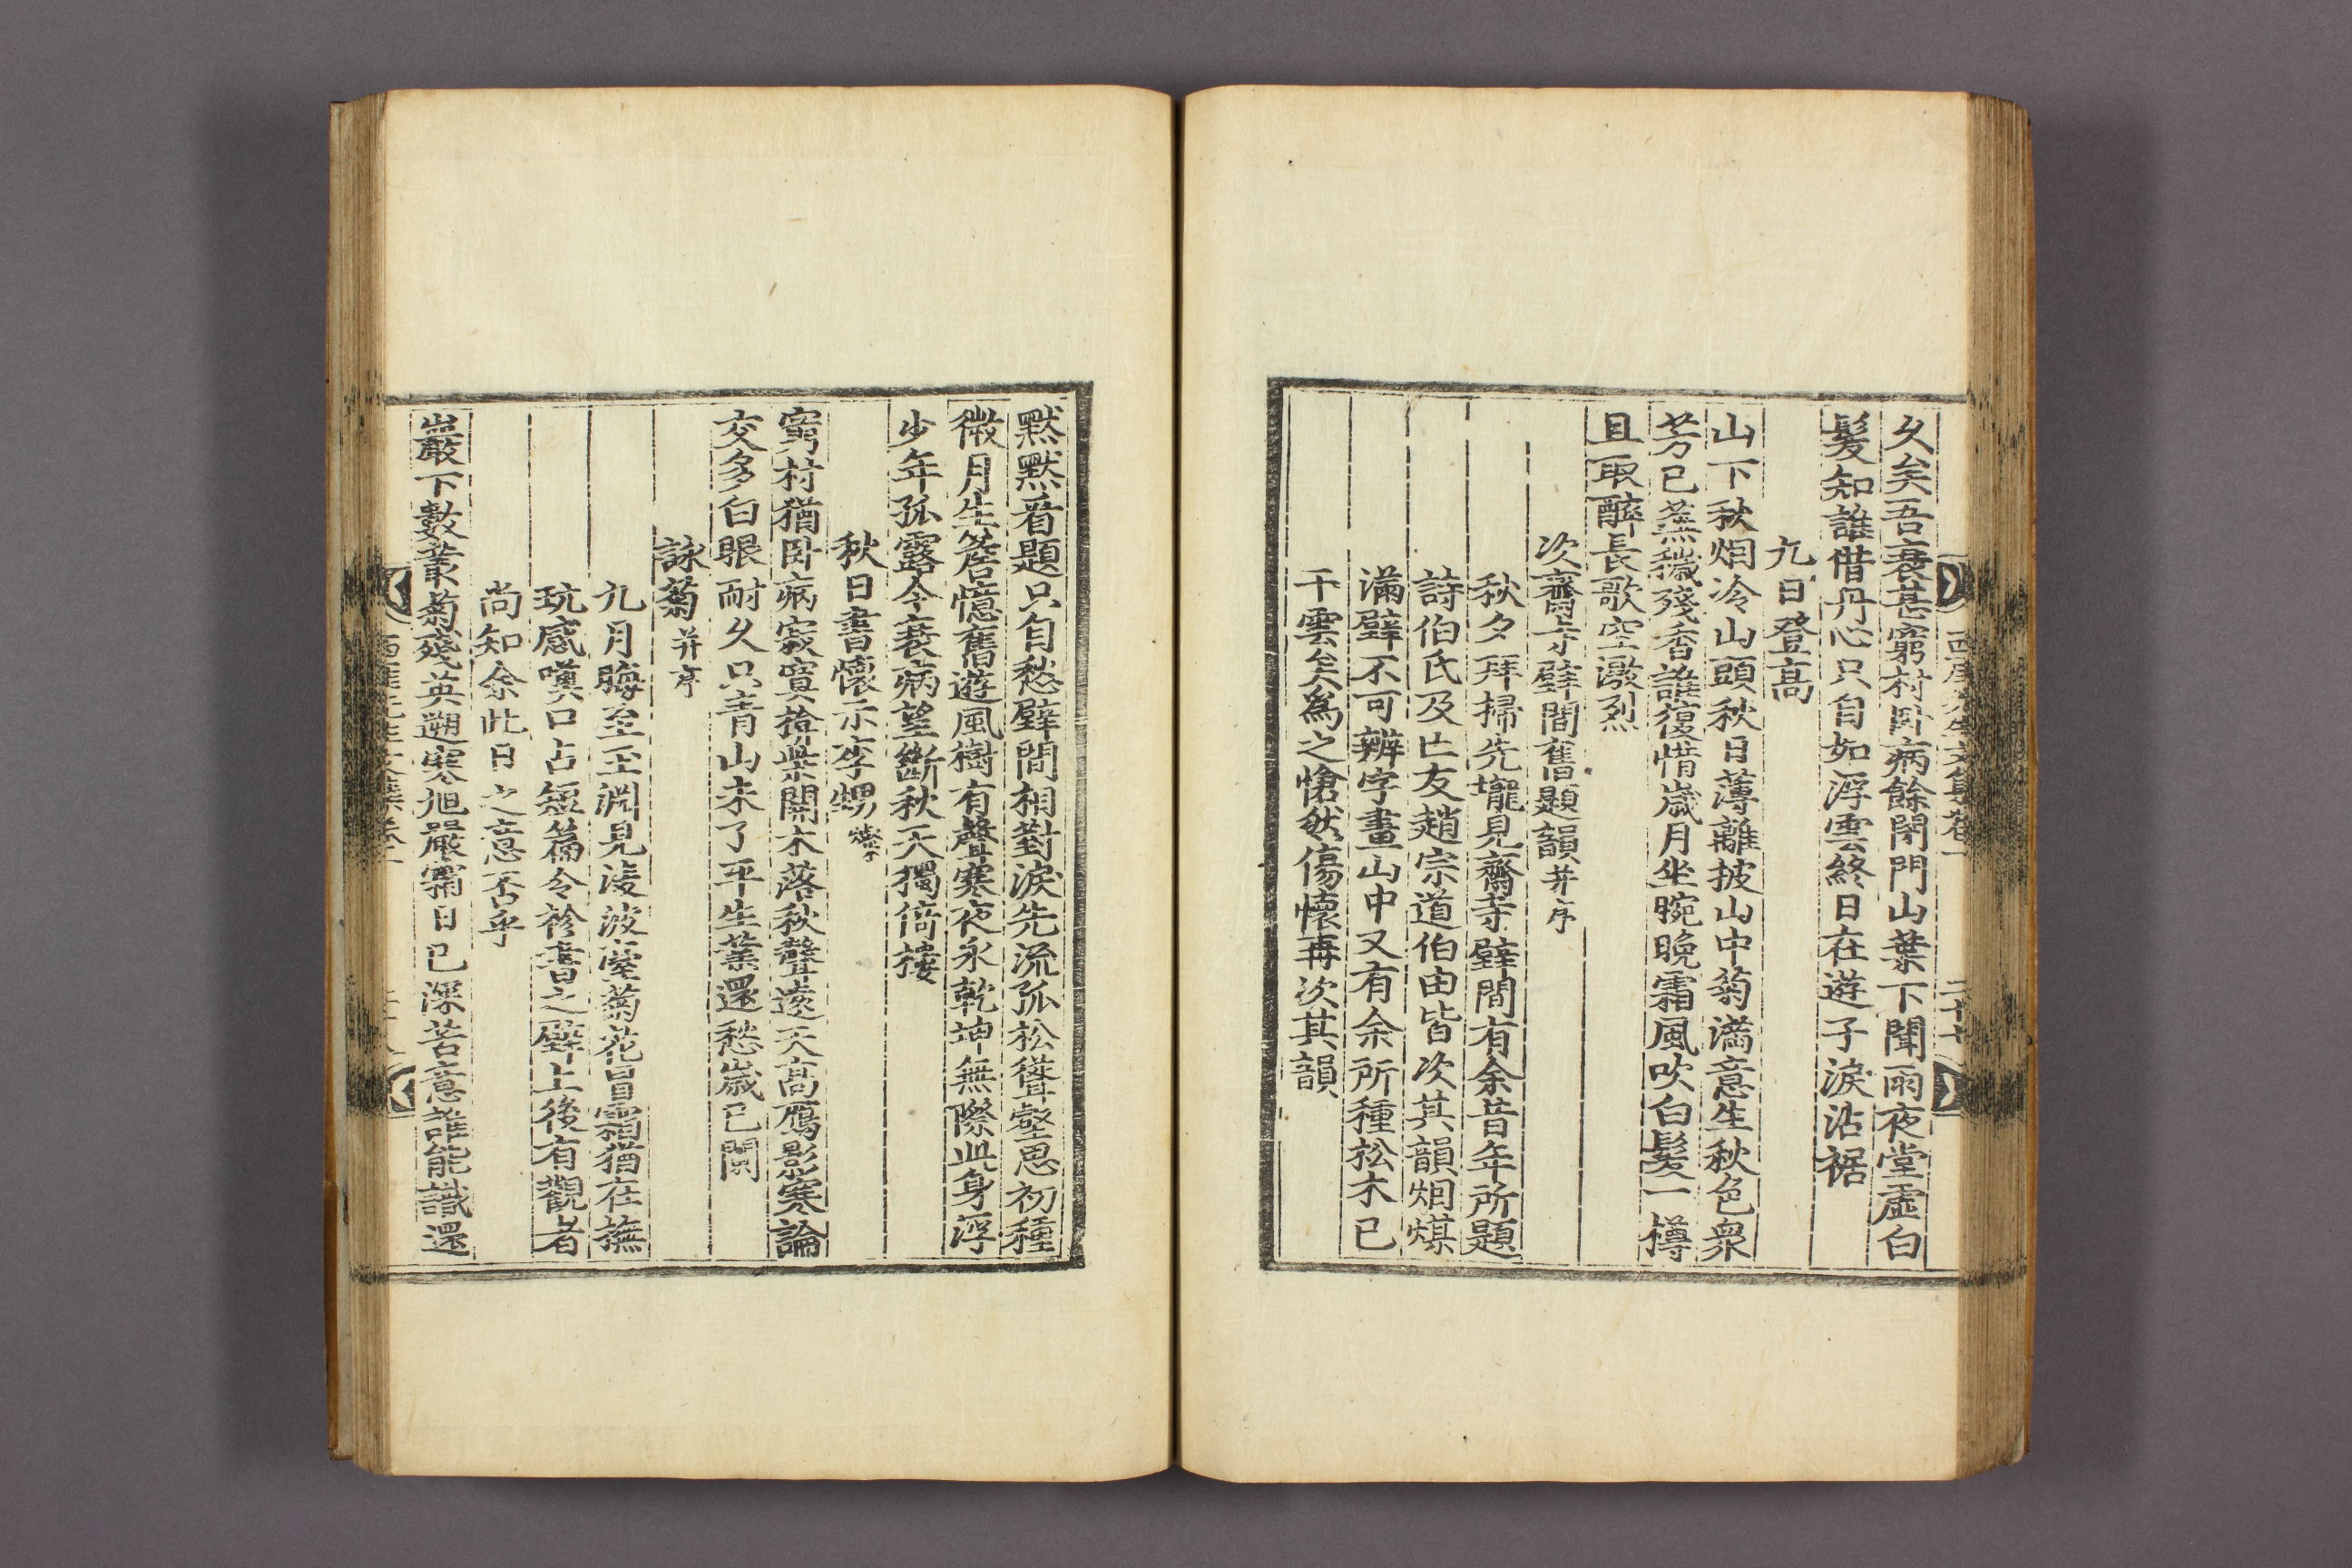 久矣吾衰甚窮村卧病餘閉門山葉下聞雨夜堂虛白
髮知誰借丹心只自如浮雲終日在遊子淚沾裾
九日登高
山下秋烟冷山頭秋日薄離披山中菊滿意生秋色衆
芳已蕪穢殘香誰復惜歲月坐晼晚霜風吹白髮一樽
且取醉長歌空激烈
次齋寺壁間舊題韻并序
秋夕拜掃先壠見齋寺壁間有余昔年所題
詩伯氏及亡友趙宗道伯由皆次其韻烟煤
滿壁不可辨字畫山中又有余所種松木已
干雲矣爲之愴然傷懷再次其韻
默默看題只自愁壁間相對淚先流孤松聳壑思初種
微月生簷憶舊遊風樹有聲寒夜永乾坤無際此身浮
少年孤露今衰病望斷秋天獨倚樓
秋日書懷示李甥
窮村猶卧病寂寞掩柴關木落秋聲遠天高鴈影寒論
交多白眼耐久只青山未了平生業還愁歲已闌
詠菊并序
九月晦至玉淵見凌波臺菊花冒霜猶在撫
玩感嘆口占短篇令袗書之壁上後有觀者
尚知余此日之意否乎
巖下數叢菊殘英遡寒旭嚴霜日已深苦意誰能識還